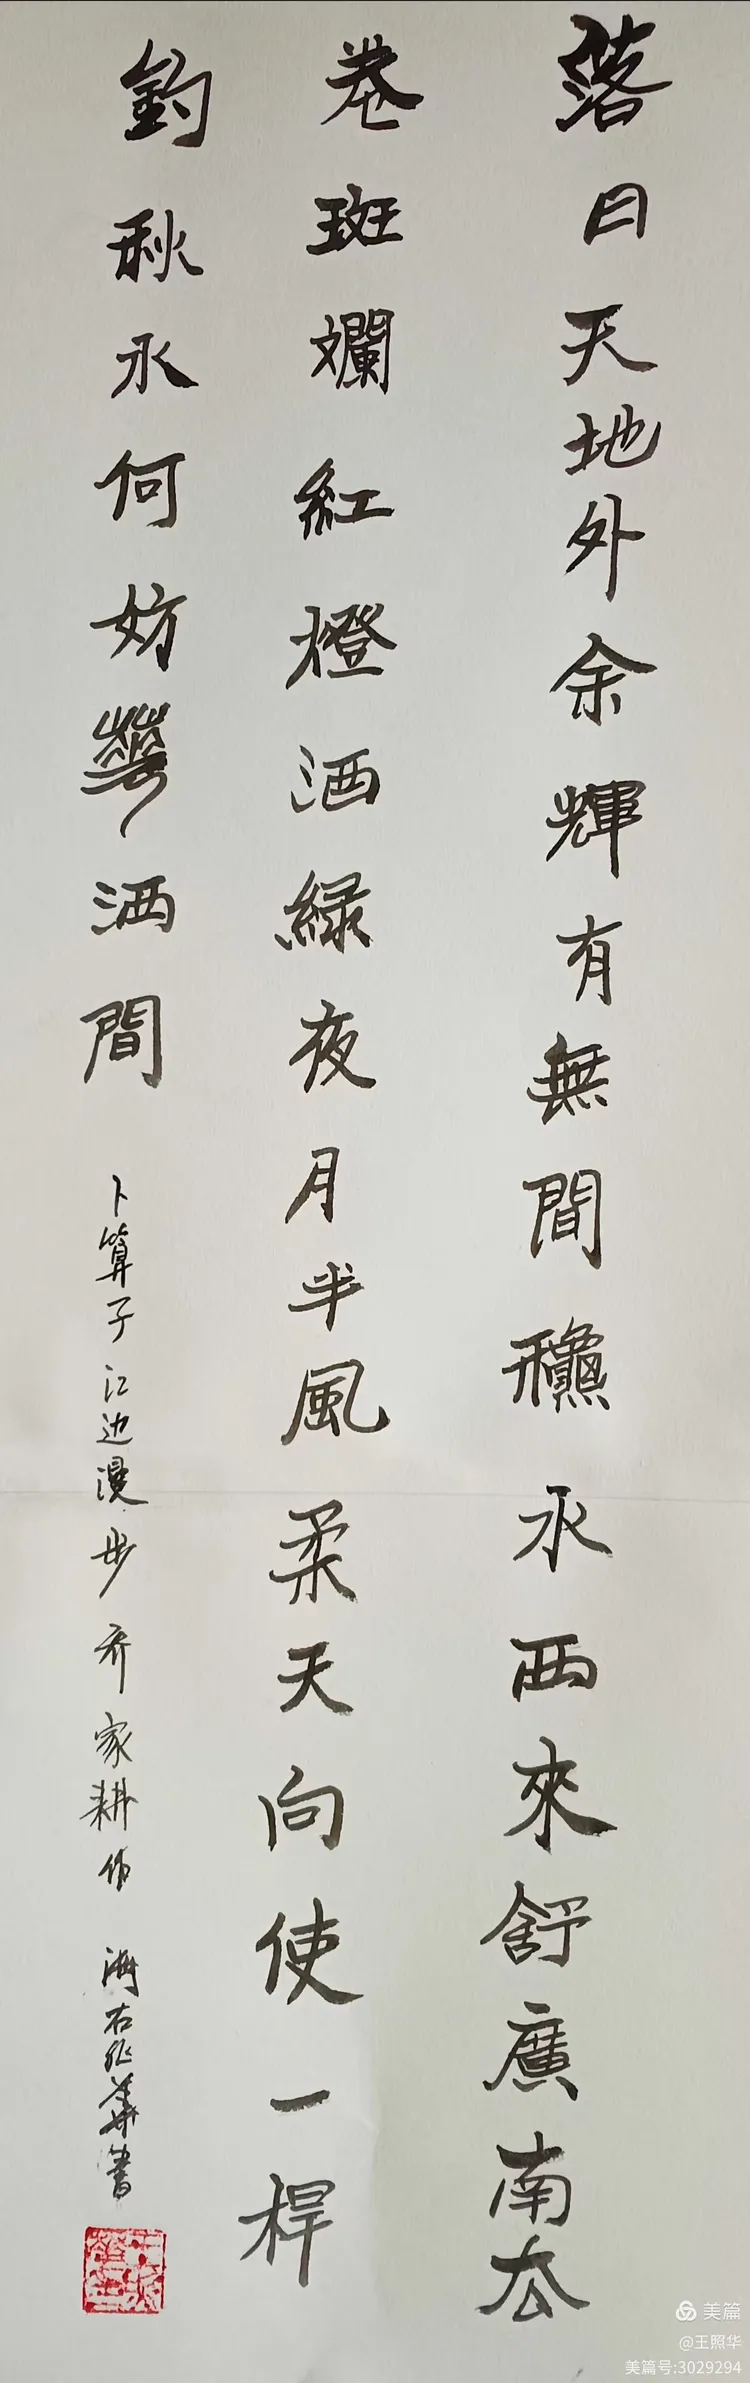 落日天地外余輝有無間龝水西來舒廣南厺
卷斑斕紅橙酒綠夜月半風柔天向使一桿
釣秋水何妨酒間
卜算子江边漫步乔家耕作 海右照華書
美篇
@王照华
美篇号:3029294